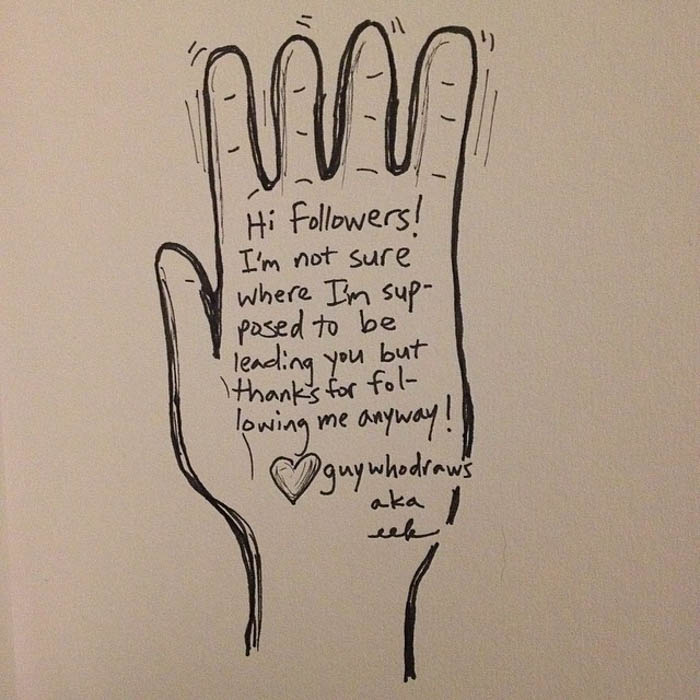 Hi followers!
I'm not sure
where I'm sup-
posed to be
leading you but
thanks for fol-
lowing me anyway!
guywhodraws
aka
eek